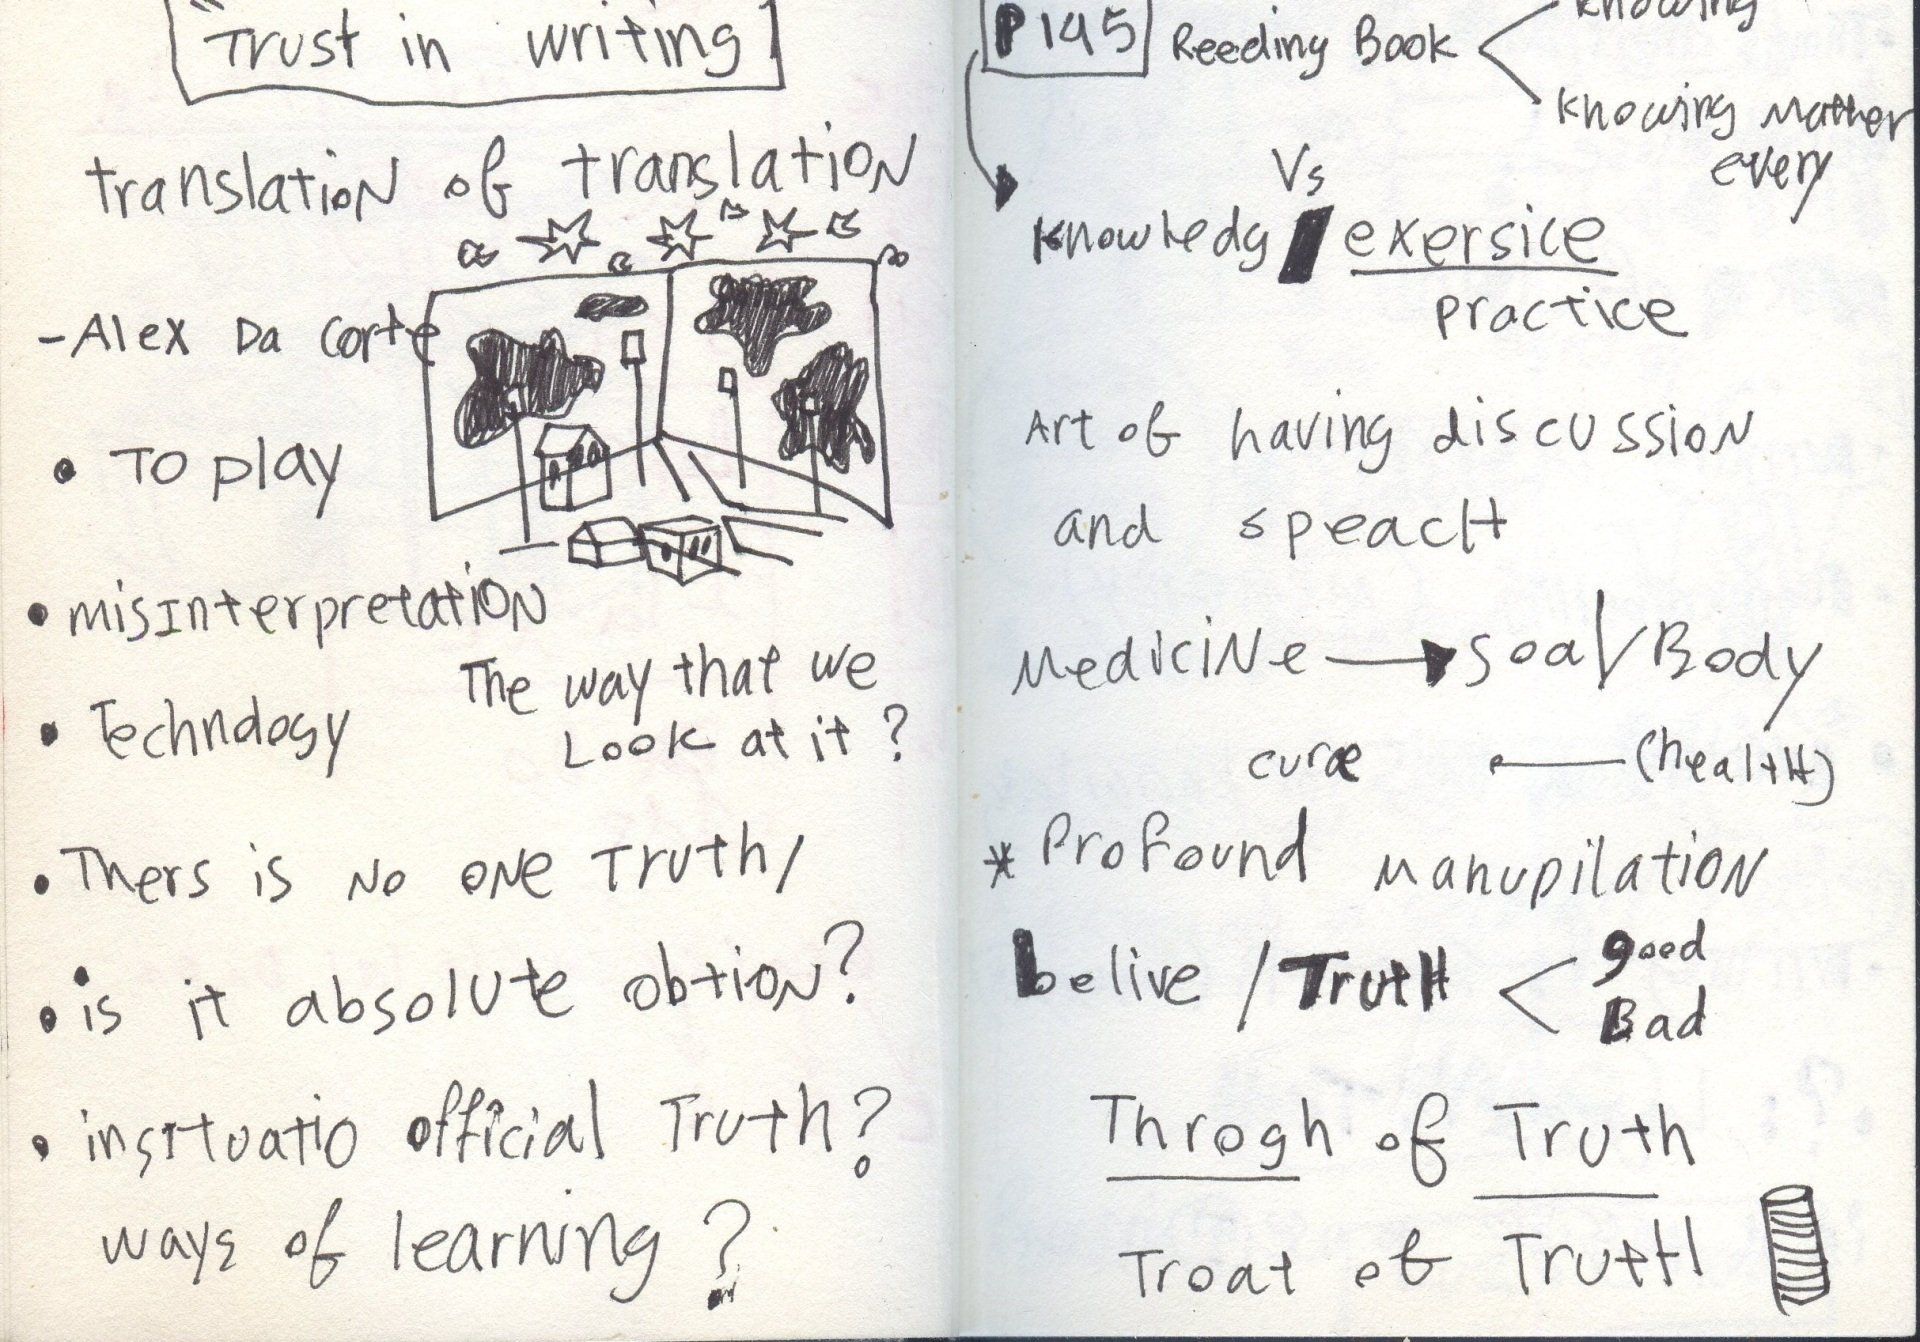 "Trust in writing
translation of translation
- Alex Da Corte
• To play
• misInterpretation
The way that we
Look at it?
• Technology
• Thers is no one Truth/
• is it absolute obtion?
• insituatio official Truth?
ways of learning?
P 145 Reeding Book
knowing
knowing mather
every
Vs
knowledgy exersice
practice
Art of having discussion
and speach
Medicine → Soal/Body
cure (health)
* Profound manupilation
belive / Truth < good
Bad
Throgh of Truth
Troat of Truth